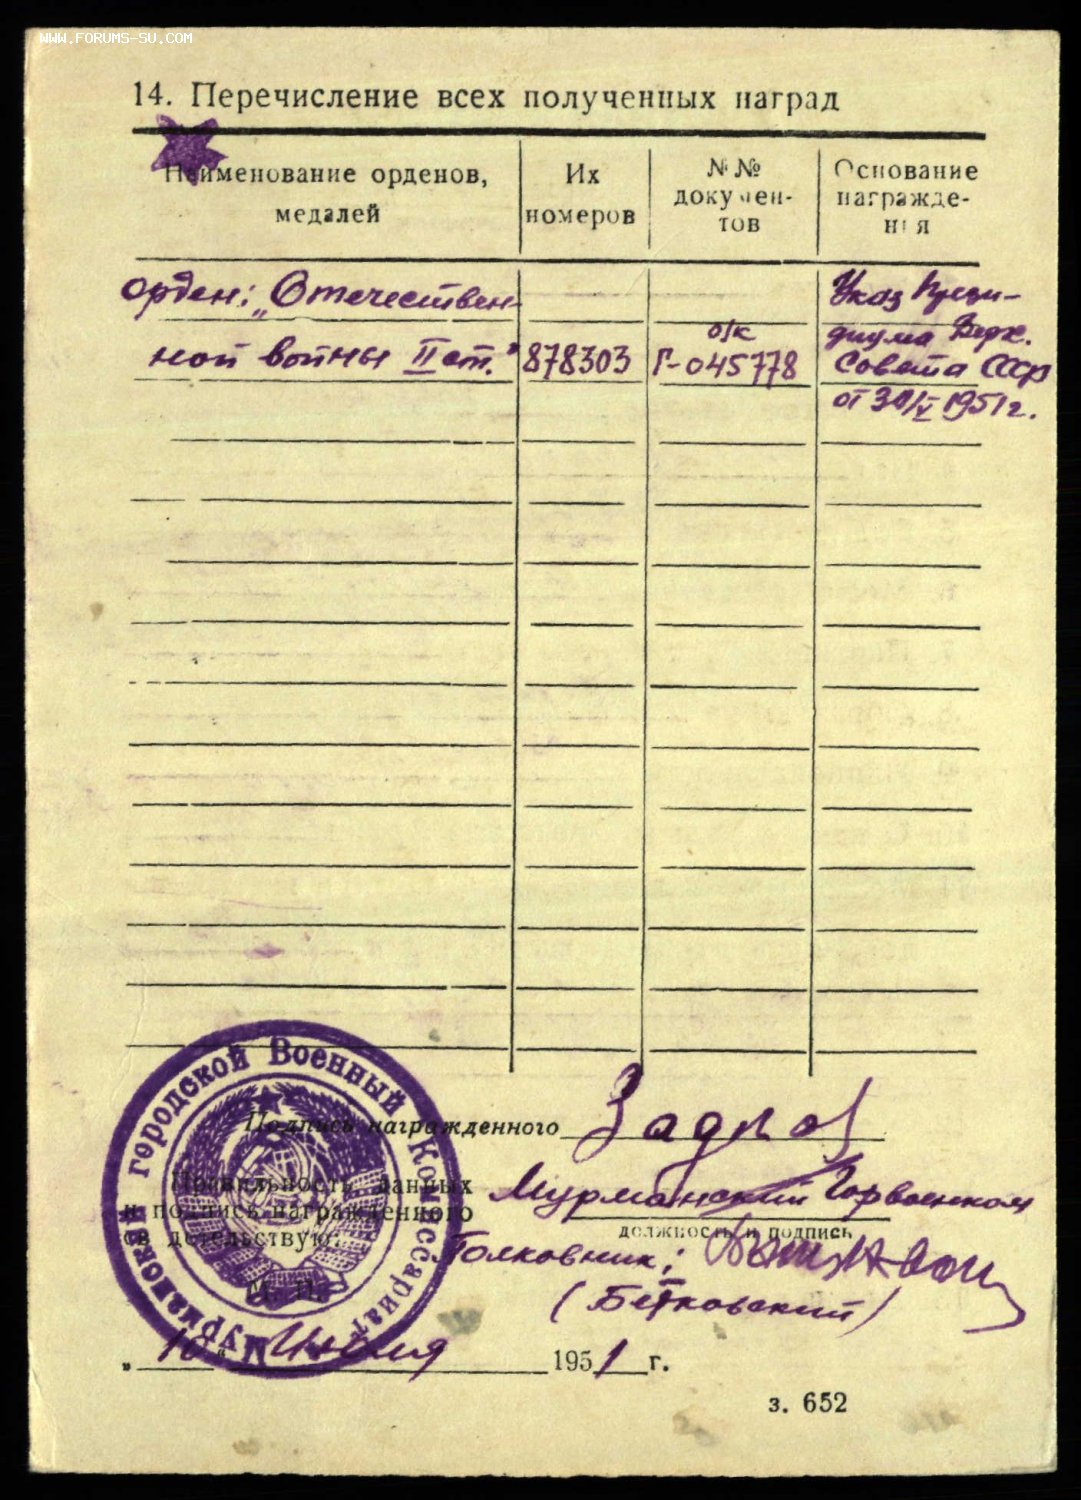 WWW.FORUMS-SU.COM
14. Перечисление всех полученных наград
Наименование орденов, медалей
Их номеров
№№ документов
Основание награждения
орден: „Отечествен
ной войны II ст.”
878303
о/к
Г-045778
Указ Прези-
диума Верх.
Совета СССР
от 30/V 1951 г.
Подпись награжденного
Правильность данных
и подпись награжденного
свидетельствую:
М. П.
Мурманский Горвоенком
должность и подпись
Полковник:
(Бетковский)
„10“ Июля 1951 г.
з. 652
Мурманский городской Военный Комиссариат